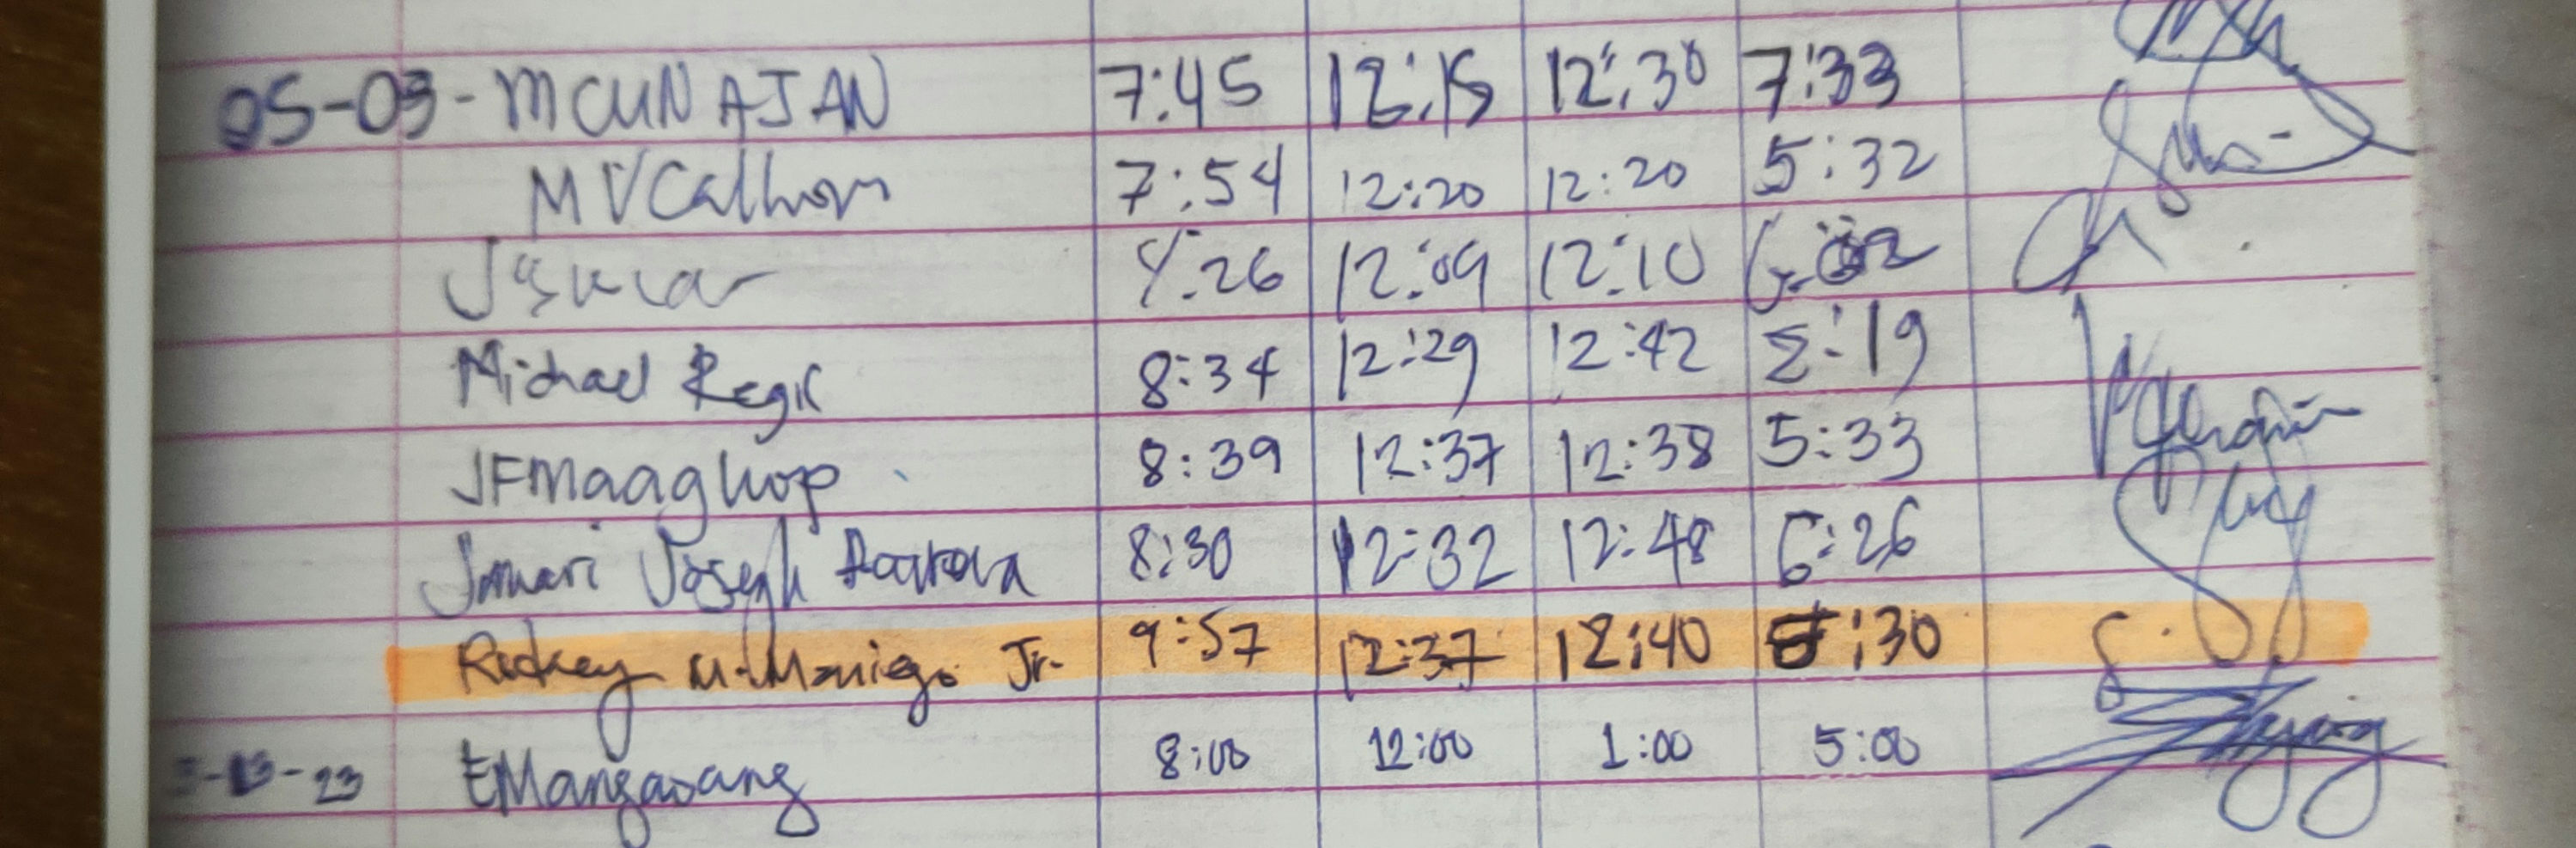 05-03- MCMNAJAN 7:45 12:15 12:30 7:33
MVCalhom 7:54 12:20 12:20 5:32
:26 12:09 12:10
Michael Regis 8:34 12:29 12:42 5:19
JFMaaghop 8:39 12:37 12:38 5:33
Joseph 8:30 12:32 12:48 6:26
Rodney M. Moniego Jr. 9:57 12:37 12:40 5:30
EMangaoang 8:00 12:00 1:00 5:00